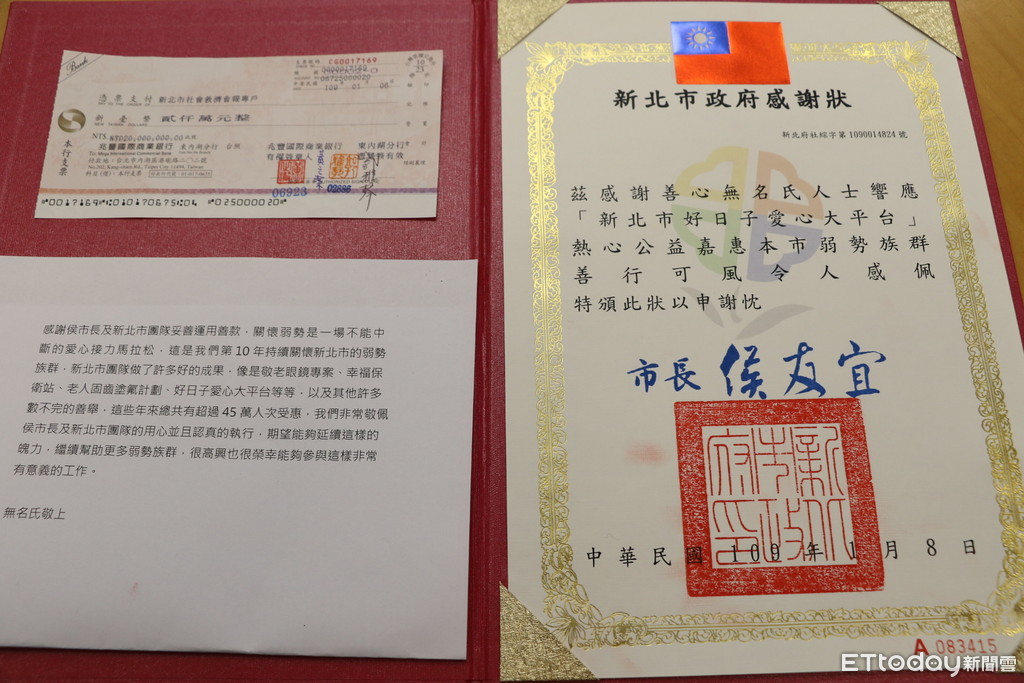 Bank
支票號碼 CG0017169
憑票支付 新北市社會救濟會報專戶
新臺幣 貳仟萬元整
NT$
兆豐國際商業銀行 東內湖分行 台照
兆豐國際商業銀行 東內湖分行
有權簽章人
付款地：台北市內湖區港墘路
本行支票
06923
02886
感謝侯市長及新北市團隊妥善運用善款，關懷弱勢是一場不能中
斷的愛心接力馬拉松，這是我們第 10 年持續關懷新北市的弱勢
族群，新北市團隊做了許多好的成果，像是敬老眼鏡專案、幸福保
衛站、老人固齒塗氟計劃、好日子愛心大平台等等，以及其他許多
數不完的善舉，這些年來總共有超過 45 萬人次受惠，我們非常敬佩
侯市長及新北市團隊的用心並且認真的執行，期望能夠延續這樣的
魄力，繼續幫助更多弱勢族群，很高興也很榮幸能夠參與這樣非常
有意義的工作。
無名氏敬上
新北市政府感謝狀
新北府社綜字第1090014824號
茲感謝善心無名氏人士響應
「新北市好日子愛心大平台」
熱心公益嘉惠本市弱勢族群
善行可風令人感佩
特頒此狀以申謝忱
市長 侯友宜
新北市政府印
中華民國 109 年 1 月 8 日
A 083415
ETtoday新聞雲